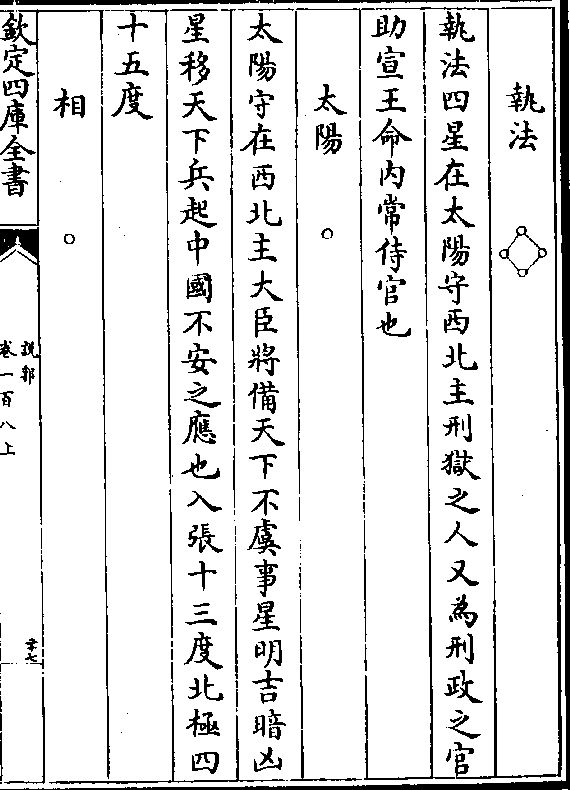 執法
執法四星在太陽守西北主刑獄之人又為刑政之官
助宣王命内常侍官也
太陽
太陽守在西北主大臣將備天下不虞事星明吉暗凶
星移天下兵起中國不安之應也入張十三度北極四
十五度
相
欽定四庫全書
說郛
卷一百八上